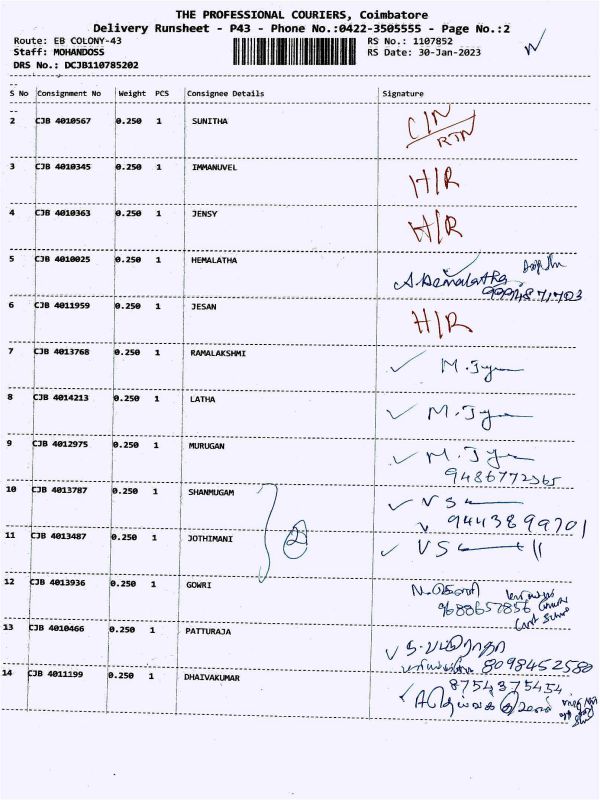 THE PROFESSIONAL COURIERS, Coimbatore
Delivery Runsheet - P43 - Phone No.:0422-3505555 - Page No.:2
Route: EB COLONY-43 RS No.: 1107852
Staff: MOHANDOSS RS Date: 30-Jan-2023
DRS No.: DCJB110785202
S No Consignment No Weight PCS Consignee Details Signature
2 CJB 4010567 0.250 1 SUNITHA C/N
RTN
3 CJB 4010345 0.250 1 IMMANUVEL H/R
4 CJB 4010363 0.250 1 JENSY H/R
5 CJB 4010025 0.250 1 HEMALATHA A. Hemalatha
6 CJB 4011959 0.250 1 JESAN H/R
7 CJB 4013768 0.250 1 RAMALAKSHMI
8 CJB 4014213 0.250 1 LATHA
9 CJB 4012975 0.250 1 MURUGAN
9486772365
10 CJB 4013787 0.250 1 SHANMUGAM
9443899701
11 CJB 4013487 0.250 1 JOTHIMANI
2
12 CJB 4013936 0.250 1 GOWRI
9688657856
13 CJB 4010466 0.250 1 PATTURAJA
8098452580
14 CJB 4011199 0.250 1 DHAIVAKUMAR 8754375454